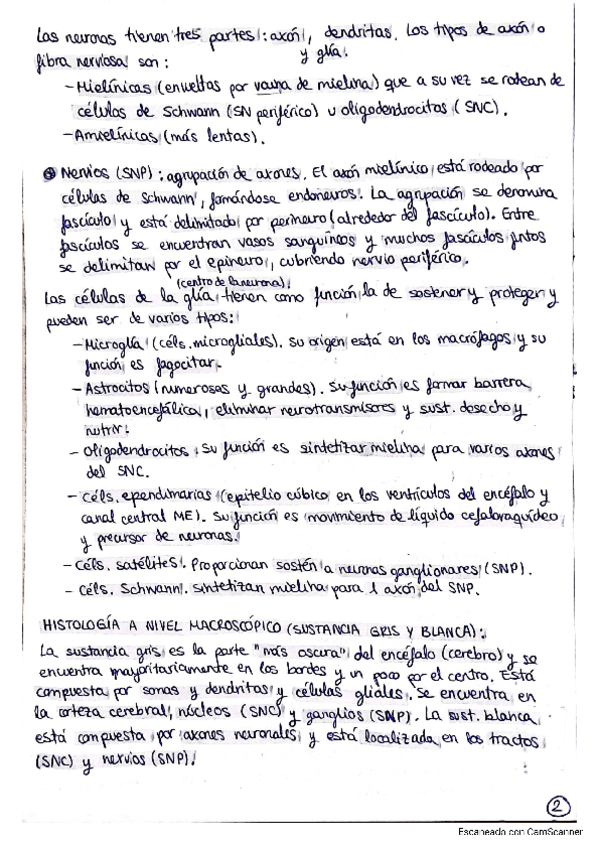 Las neuronas tienen tres partes: axón, dendritas. Los tipos de axón o
y glía.
fibra nerviosa son:
- Mielínicas (envueltas por vaina de mielina) que a su vez se rodean de
células de Schwann (SN periférico) u oligodendrocitos (SNC).
- Amielínicas (más lentas).
Nervios (SNP): agrupación de axones. El axón mielínico está rodeado por
células de Schwann, formándose endoneuros. La agrupación se denomina
fascículo y está delimitado por perineuro (alrededor del fascículo). Entre
fascículos se encuentran vasos sanguíneos y muchos fascículos juntos
se delimitan por el epineuro, cubriendo nervio periférico.
(centro de la neurona).
Las células de la glía tienen como función la de sostener y proteger y
pueden ser de varios tipos:
- Microglía (céls. microgliales). Su origen está en los macrófagos y su
función es fagocitar.
- Astrocitos (numerosos y grandes). Su función es formar barrera
hematoencefálica, eliminar neurotransmisores y sust. desecho y
nutrir.
- Oligodendrocitos. Su función es sintetizar mielina para varios axones
del SNC.
- Céls. ependimarias (epitelio cúbico en los ventrículos del encéfalo y
canal central ME). Su función es movimiento de líquido cefaloraquídeo
y precursor de neuronas.
- Céls. satélites. Proporcionan sostén a neuronas ganglionares (SNP).
- Céls. Schwann. Sintetizan mielina para 1 axón del SNP.
HISTOLOGÍA A NIVEL MACROSCÓPICO (SUSTANCIA GRIS Y BLANCA):
La sustancia gris es la parte "más oscura" del encéfalo (cerebro) y se
encuentra mayoritariamente en los bordes y un poco por el centro. Está
compuesta por somas y dendritas y células gliales. Se encuentra en
la corteza cerebral, núcleos (SNC) y ganglios (SNP). La sust. blanca
está compuesta por axones neuronales y está localizada en los tractos
(SNC) y nervios (SNP).
2
Escaneado con CamScanner